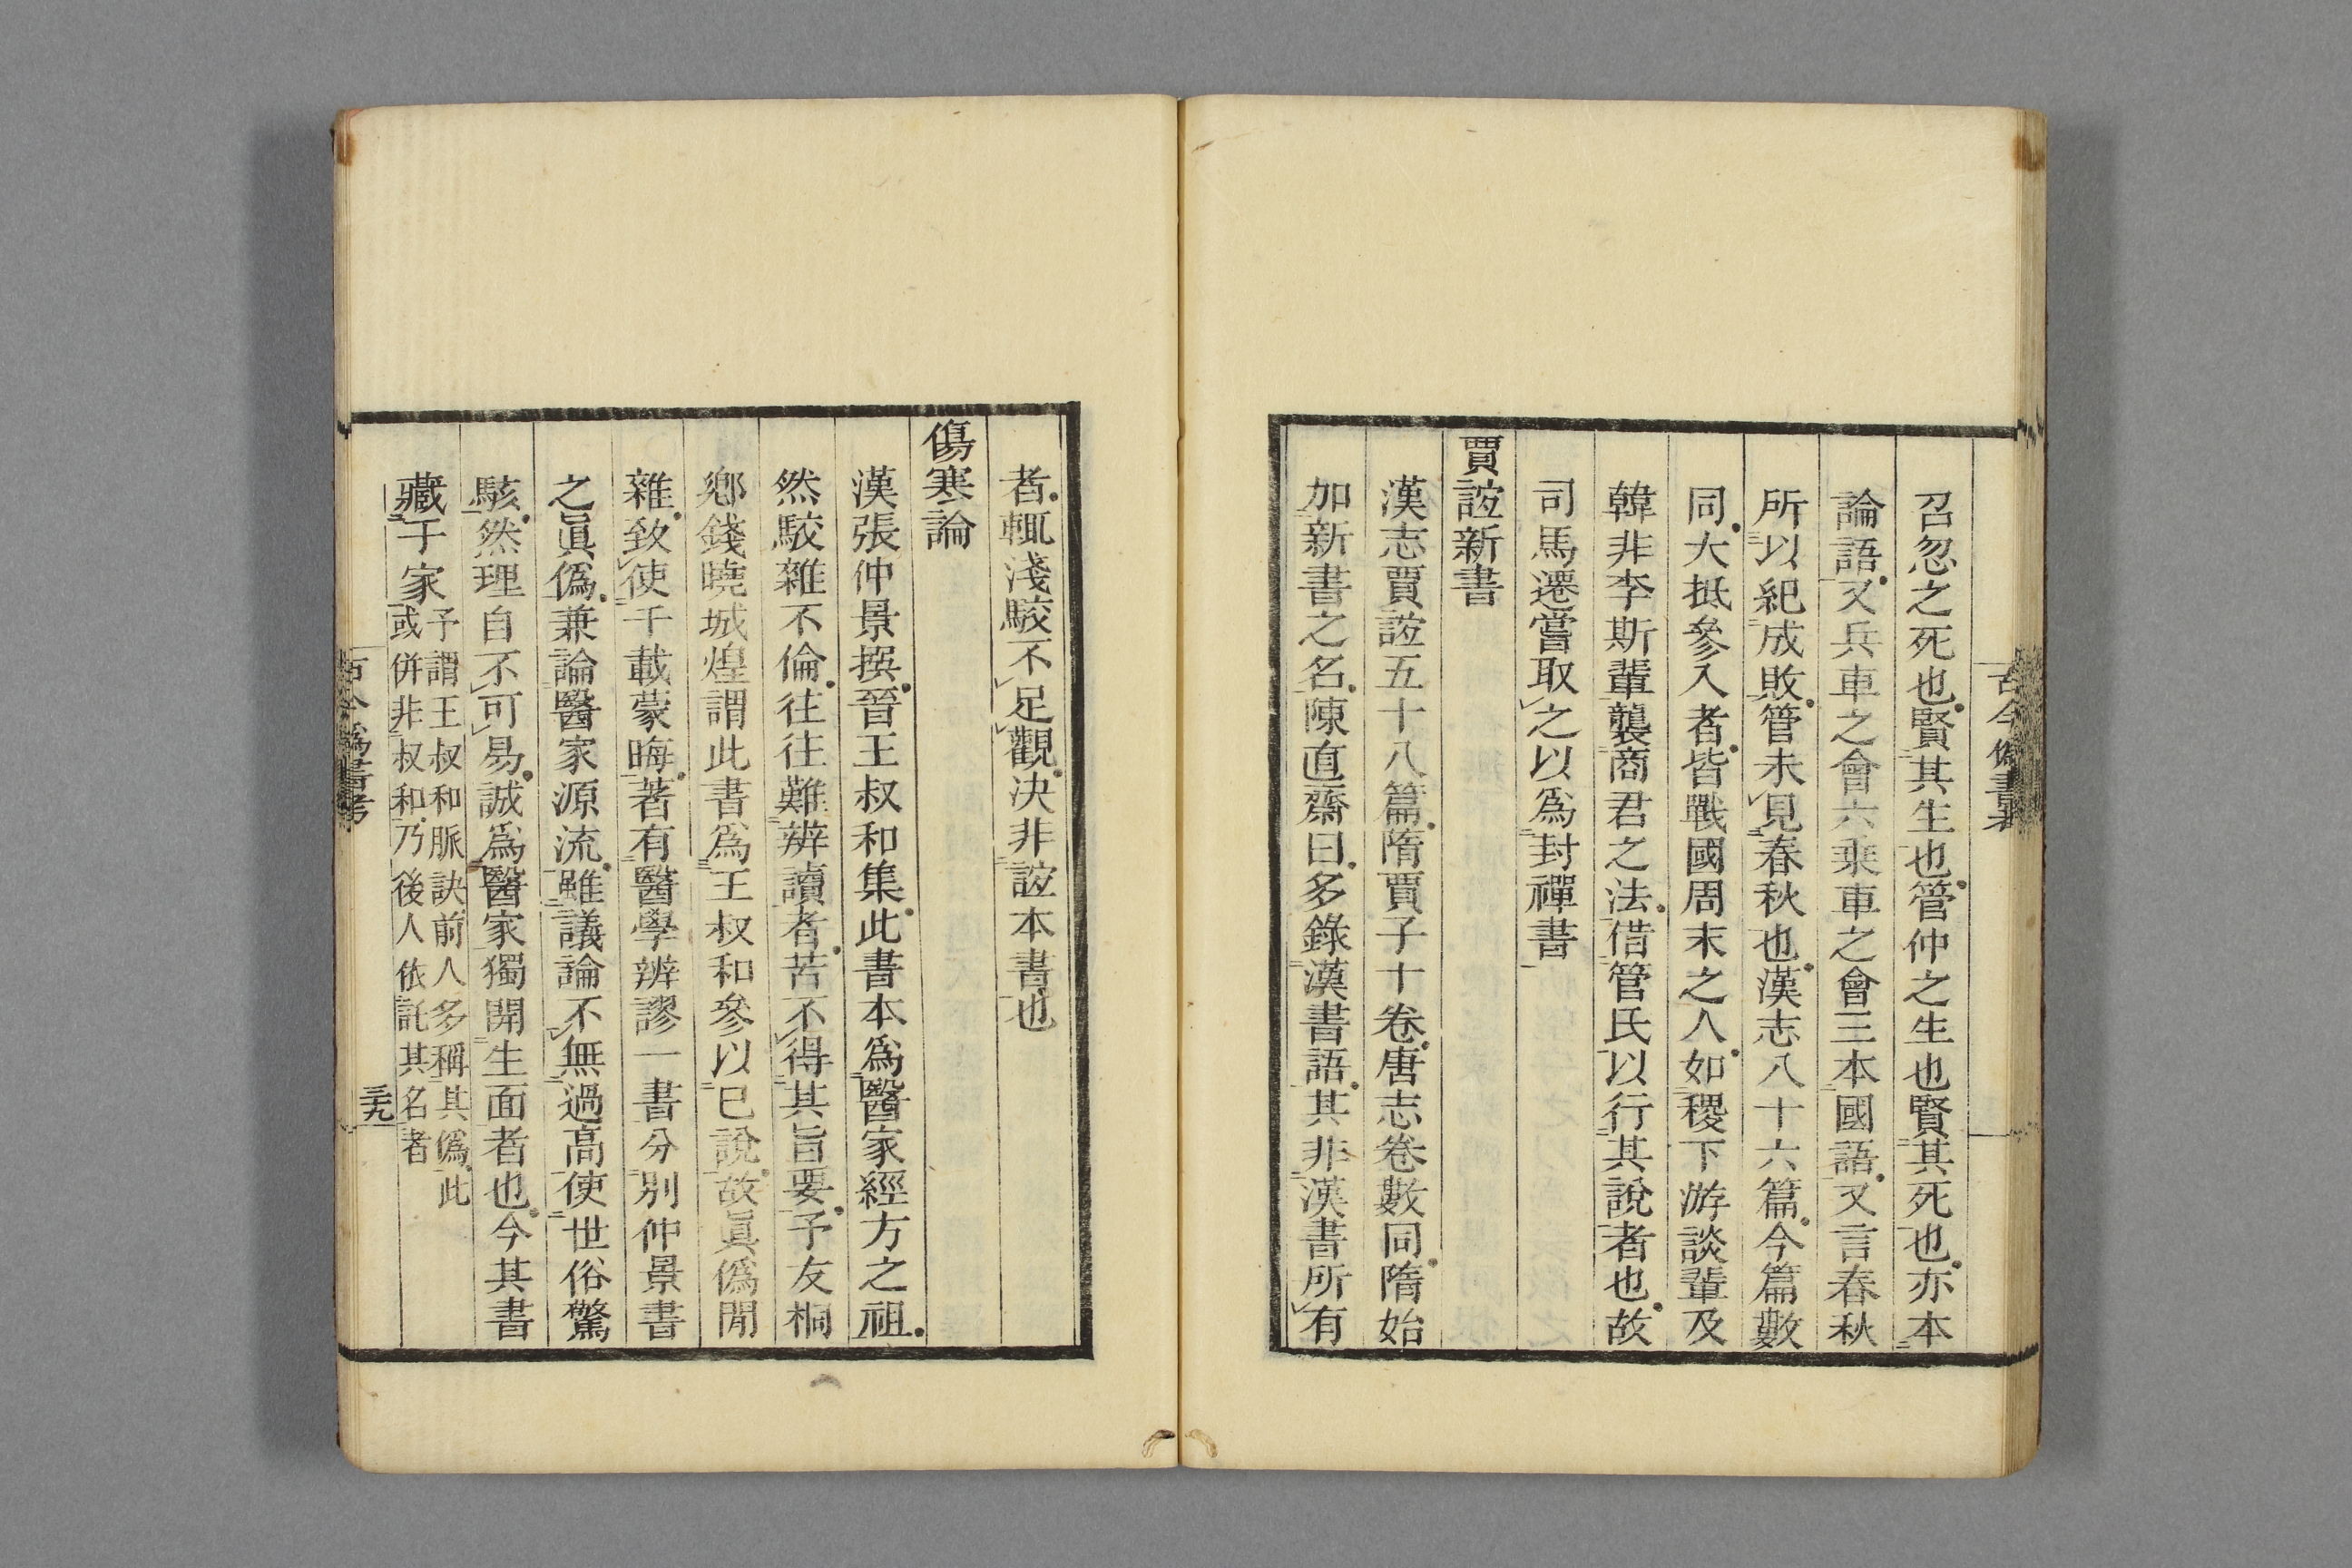 古今僞書考
召忽之死也賢其生也管仲之生也賢其死也亦本
論語又兵車之會六乘車之會三本國語又言春秋
所以紀成敗管未見春秋也漢志八十六篇今篇數
同大抵參入者皆戰國周末之人如稷下游談輩及
韓非李斯輩襲商君之法借管氏以行其說者也故
司馬遷嘗取之以爲封禪書
賈誼新書
漢志賈誼五十八篇隋賈子十卷唐志卷數同隋始
加新書之名陳直齋曰多錄漢書語其非漢書所有
者輒淺駮不足觀決非誼本書也
傷寒論
漢張仲景撰晉王叔和集此書本爲醫家經方之祖
然駮雜不倫往往難辨讀者苦不得其旨要予友桐
鄉錢曉城煌謂此書爲王叔和參以已說故眞僞閒
雜致使千載蒙晦著有醫學辨謬一書分別仲景書
之眞僞兼論醫家源流雖議論不無過高使世俗驚
駭然理自不可易誠爲醫家獨開生面者也今其書
藏于家予謂王叔和脈訣前人多稱其僞此
或併非叔和乃後人依託其名者
古今僞書考
三十九